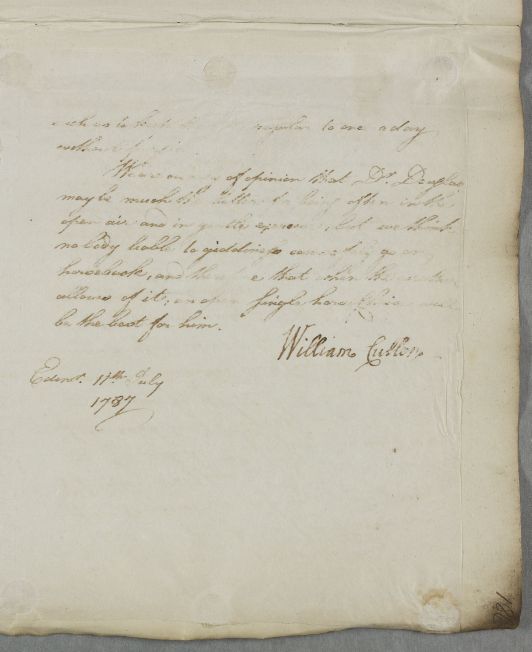 to one a day
without
We are of opinion that Dr. Douglas
may be much the better for being often in the
open air and in gentle exercise, but we think
no body liable to giddiness can safely go on
horseback, and therefore that when the weather
allows of it, an open single horse Chaise will
be the best for him.
William Cullen
Edinr. 11th July
1787